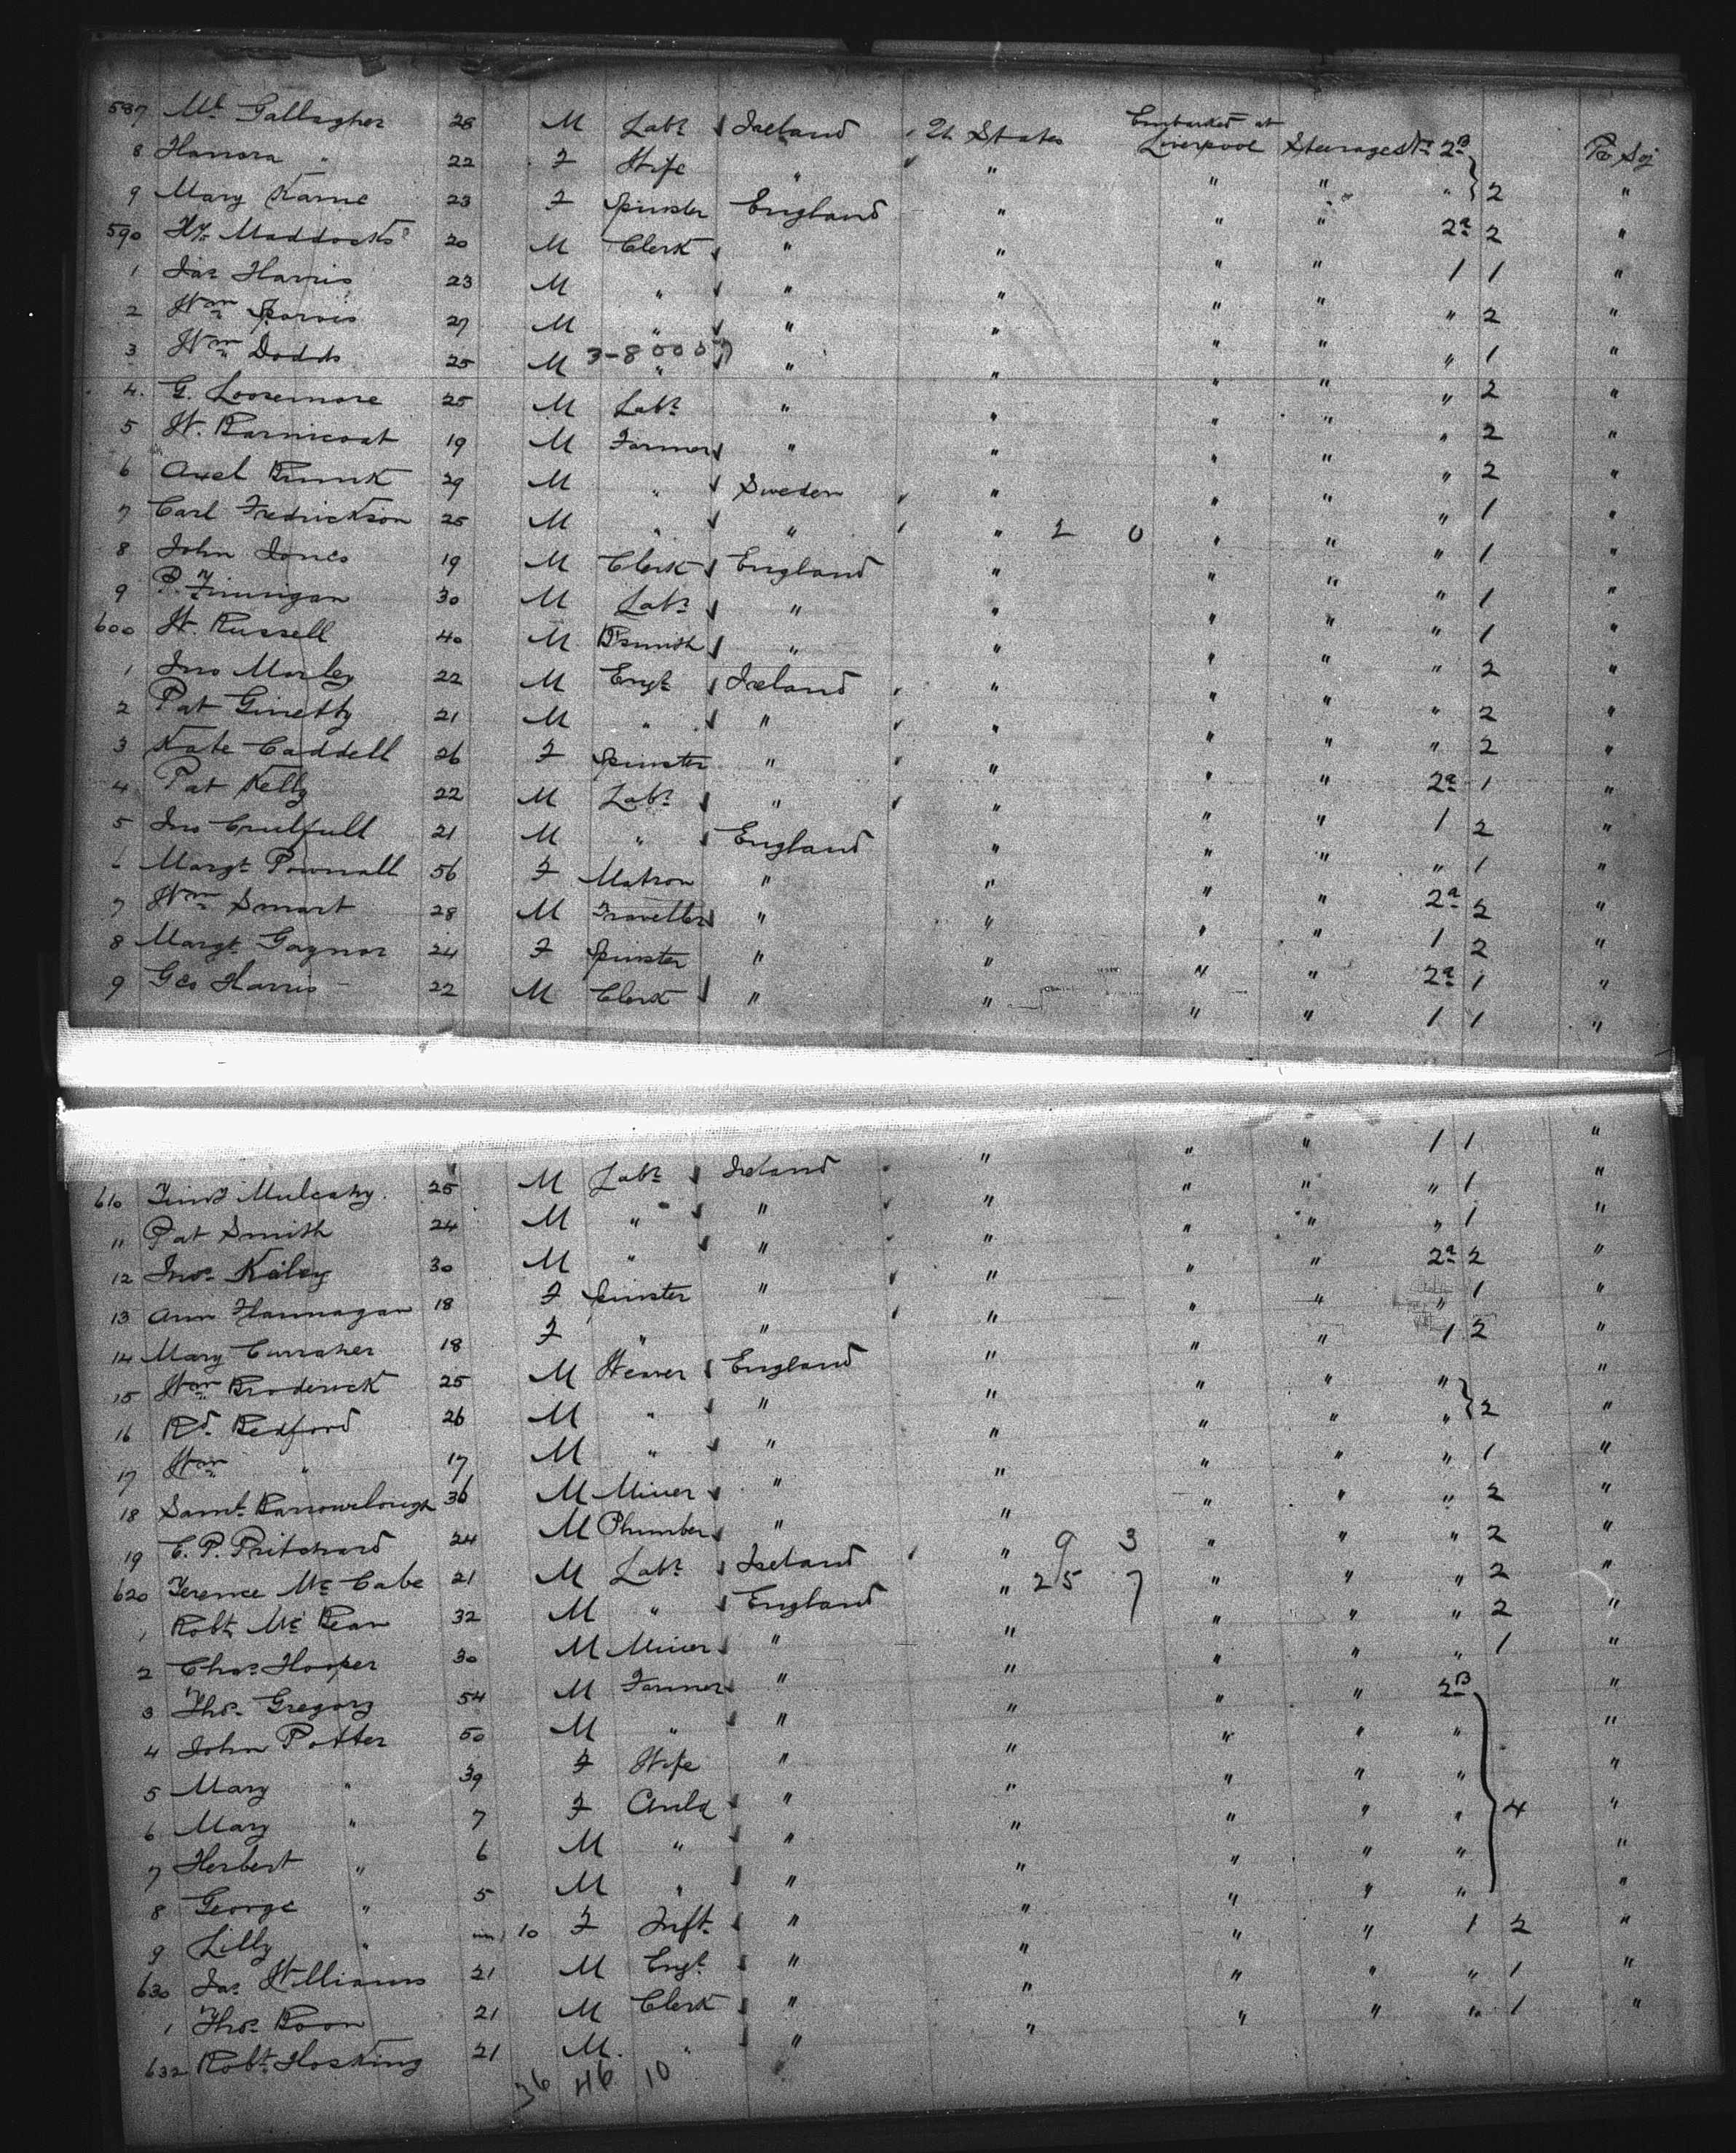 Embarked at
587 Ml Gallagher 28 M Labr Ireland U. States Liverpool Steerage 2B Pro Soj
8 Honora " 22 F Wife " " " " " 2 "
9 Mary Kame 23 F Spinster England " " " 2a 2 "
590 Hy Maddocks 20 M Clerk " " " " 1 1 "
1 Jas Harris 23 M " " " " " " 2 "
2 Wm Jarvis 27 M " " " " " " 1 "
3-8000
3 Wm Dodds 25 M " " " " " " 2 "
4 G. Loosemore 25 M Labr " " " " " 2 "
5 W. Barnicoat 19 M Farmer " " " " " 2 "
6 Axel Brunk 29 M " Sweden " " " " 1 "
7 Carl Fredrickson 25 M " " " 2 0 " " " 1 "
8 John Jones 19 M Clerk England " " " " 1 "
9 P. Finnigan 30 M Labr " " " " " 1 "
600 W. Russell 40 M B'smith " " " " " 2 "
1 Jno Morley 22 M Engr Ireland " " " " 2 "
2 Pat Ginetty 21 M " " " " " " 2 "
3 Kate Caddell 26 F Spinster " " " " 2a 1 "
4 Pat Kelly 22 M Labr " " " " 1 2 "
5 Jno 21 M " England " " " " 1 "
6 Margt Pownall 56 F Matron " " " " 2a 2 "
7 Wm Smart 28 M Traveller " " " " 1 2 "
8 Margt Gaynor 24 F Spinster " " " " 2a 1 "
9 Geo Harris 22 M Clerk " " " " 1 1 "
610 Timy Mulcahy 25 M Labr Ireland " " " 1 1 "
11 Pat Smith 24 M " " " " " " 1 "
12 Jno Kiley 30 M " " " " " " 1 "
13 Ann Flannagan 18 F Spinster " " " " 2a 2 "
14 Mary Curraher 18 F " " " " " " 1 "
15 Wm Broderick 25 M Weaver England " " " 1 2 "
16 Rd Bedford 26 M " " " " " " "
17 Wm " 17 M " " " " " " 2 "
18 Saml Barrowclough 36 M Miner " " " " " 1 "
19 E. P. Pritchard 24 M Plumber " " " " " 2 "
620 Terence McCabe 21 M Labr Ireland " 9 3 " " " 2 "
1 Robt McBean 32 M " England " 25 7 " " " 2 "
2 Chas Hooper 30 M Miner " " " " " 2 "
3 Thos Gregory 54 M Farmer " " " " " 1 "
4 John Potter 50 M " " " " " 2B "
5 Mary " 39 F Wife " " " " " "
6 Mary " 7 F Child " " " " " "
7 Herbert " 6 M " " " " " " 4 "
8 George " 5 M " " " " " " "
9 Lilly " 10 F Inft " " " " " "
630 Jas Williams 21 M Engr " " " " 1 2 "
1 Thos Boon 21 M Clerk " " " " " 1 "
632 Robt Hosking 21 M " " " " " " 1 "
36 46 10